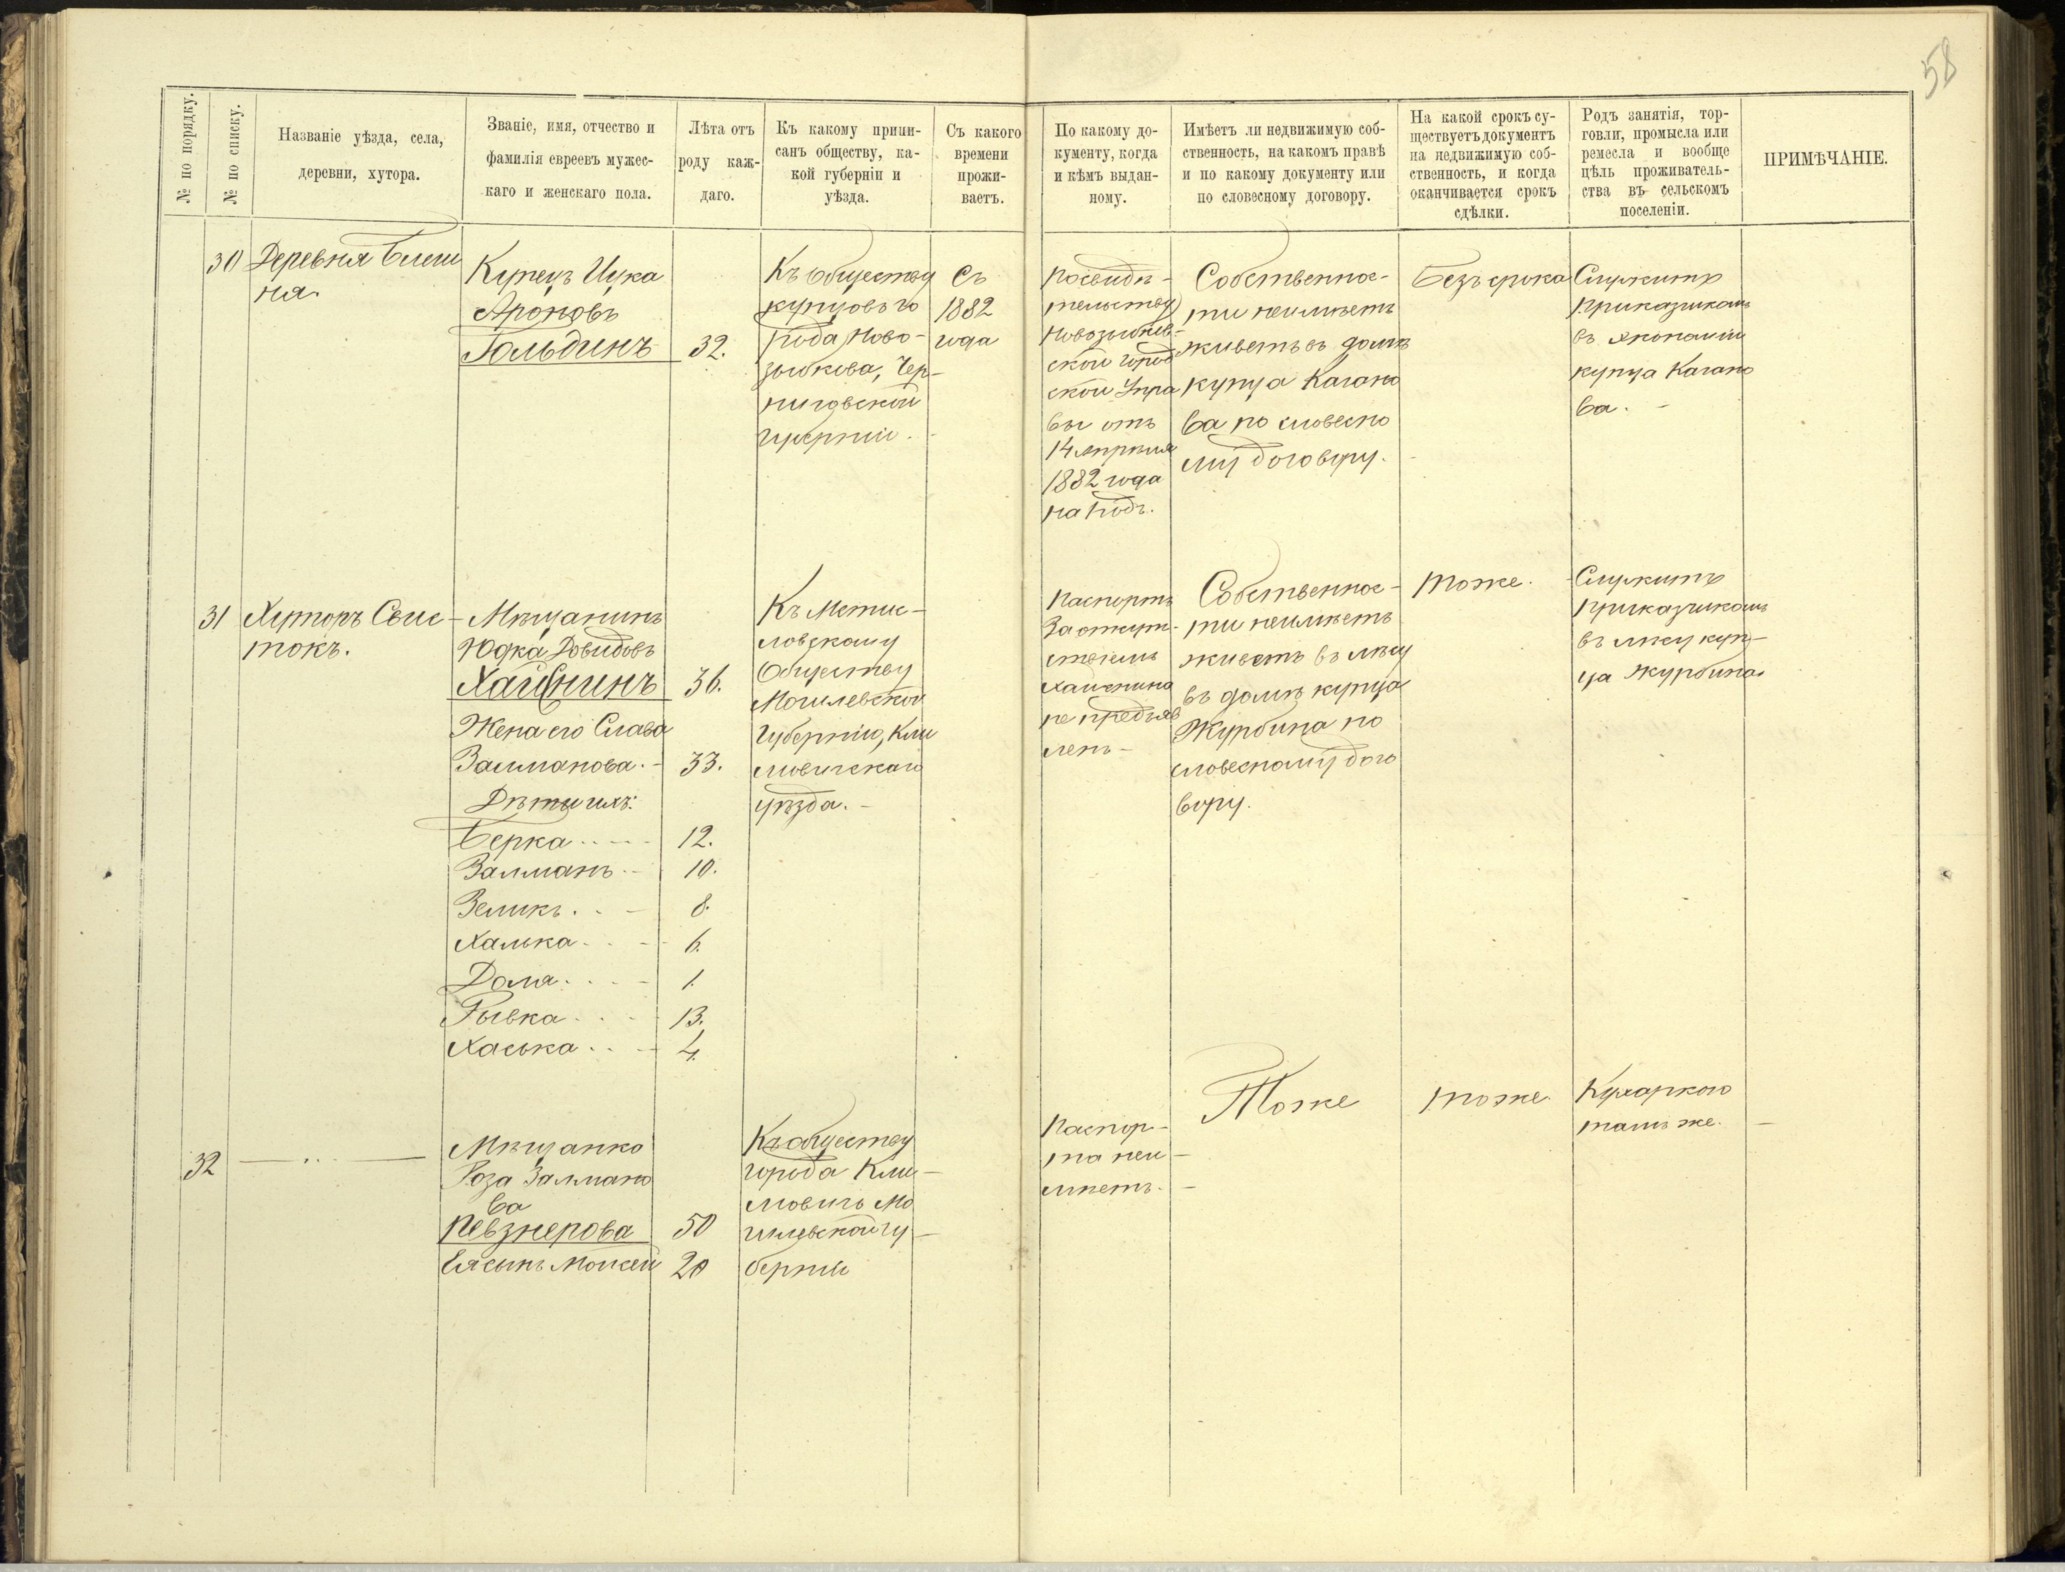 58
№ по порядку.
№ по списку.
Названіе уѣзда, села,
деревни, хутора.
Званіе, имя, отчество и
фамилія евреевъ мужес-
каго и женскаго пола.
Лѣта отъ
роду каж-
даго.
Къ какому припи-
санъ обществу, ка-
кой губерніи и
уѣзда.
Съ какого
времени
прожи-
ваетъ.
По какому до-
кументу, когда
и кѣмъ выдан-
ному.
Имѣетъ ли недвижимую соб-
ственность, на какомъ правѣ
и по какому документу или
по словесному договору.
На какой срокъ су-
ществуетъ документъ
на недвижимую соб-
ственность, и когда
оканчивается срокъ
сдѣлки.
Родъ занятія, тор-
говли, промысла или
ремесла и вообще
цѣль проживатель-
ства въ сельскомъ
поселеніи.
ПРИМѢЧАНІЕ.
30
Деревня
ня.
Купецъ Ицка
Ароновъ
Гольдинъ
32.
Къ обществу
купцовъ го
рода Ново-
зыбкова, Чер-
ниговской
губерніи.
Съ
1882
года
По свидѣ-
тельству
Новозыбков-
ской Город
ской Упра
вы отъ
14 апрѣля
1882 года
на годъ.
Собственнос-
ти неимѣетъ
живетъ въ домѣ
купца Кагано
ва по словесно
му договору.
Безъ срока
Служитъ
прикащикомъ
въ экономіи
купца Кагано
ва.
31
Хуторъ Свис-
токъ.
Мѣщанинъ
Юдка Довидовъ
Хайснинъ
36.
Жена его Слава
Залманова.
33.
Дѣти ихъ:
Берка
12.
Залманъ
10.
Зеликъ
8.
Халька
6.
Доля
1.
Рывка
13.
Хаська
4.
Къ Мстис-
ловскому
Обществу
Могилевской
Губерніи, Кли
мовичскаго
уѣзда.
Паспортъ
За отсут-
ствіемъ
Хайснина
не предъяв
ленъ
Собственнос-
ти неимѣетъ
живетъ въ лѣсу
въ домѣ купца
Журбина по
словесному дого
вору.
тоже.
Служитъ
прикащикомъ
въ лѣсу куп-
ца Журбина
32
Мѣщанка
Роза Залмано
ва
Певзнерова
50
Ея сынъ Моисей
20
Къ обществу
города Кли-
мовичъ Мо
гилевской гу-
берніи
Паспор-
та неи-
мѣетъ.
Тоже
тоже
Кухаркою
тамъ же.